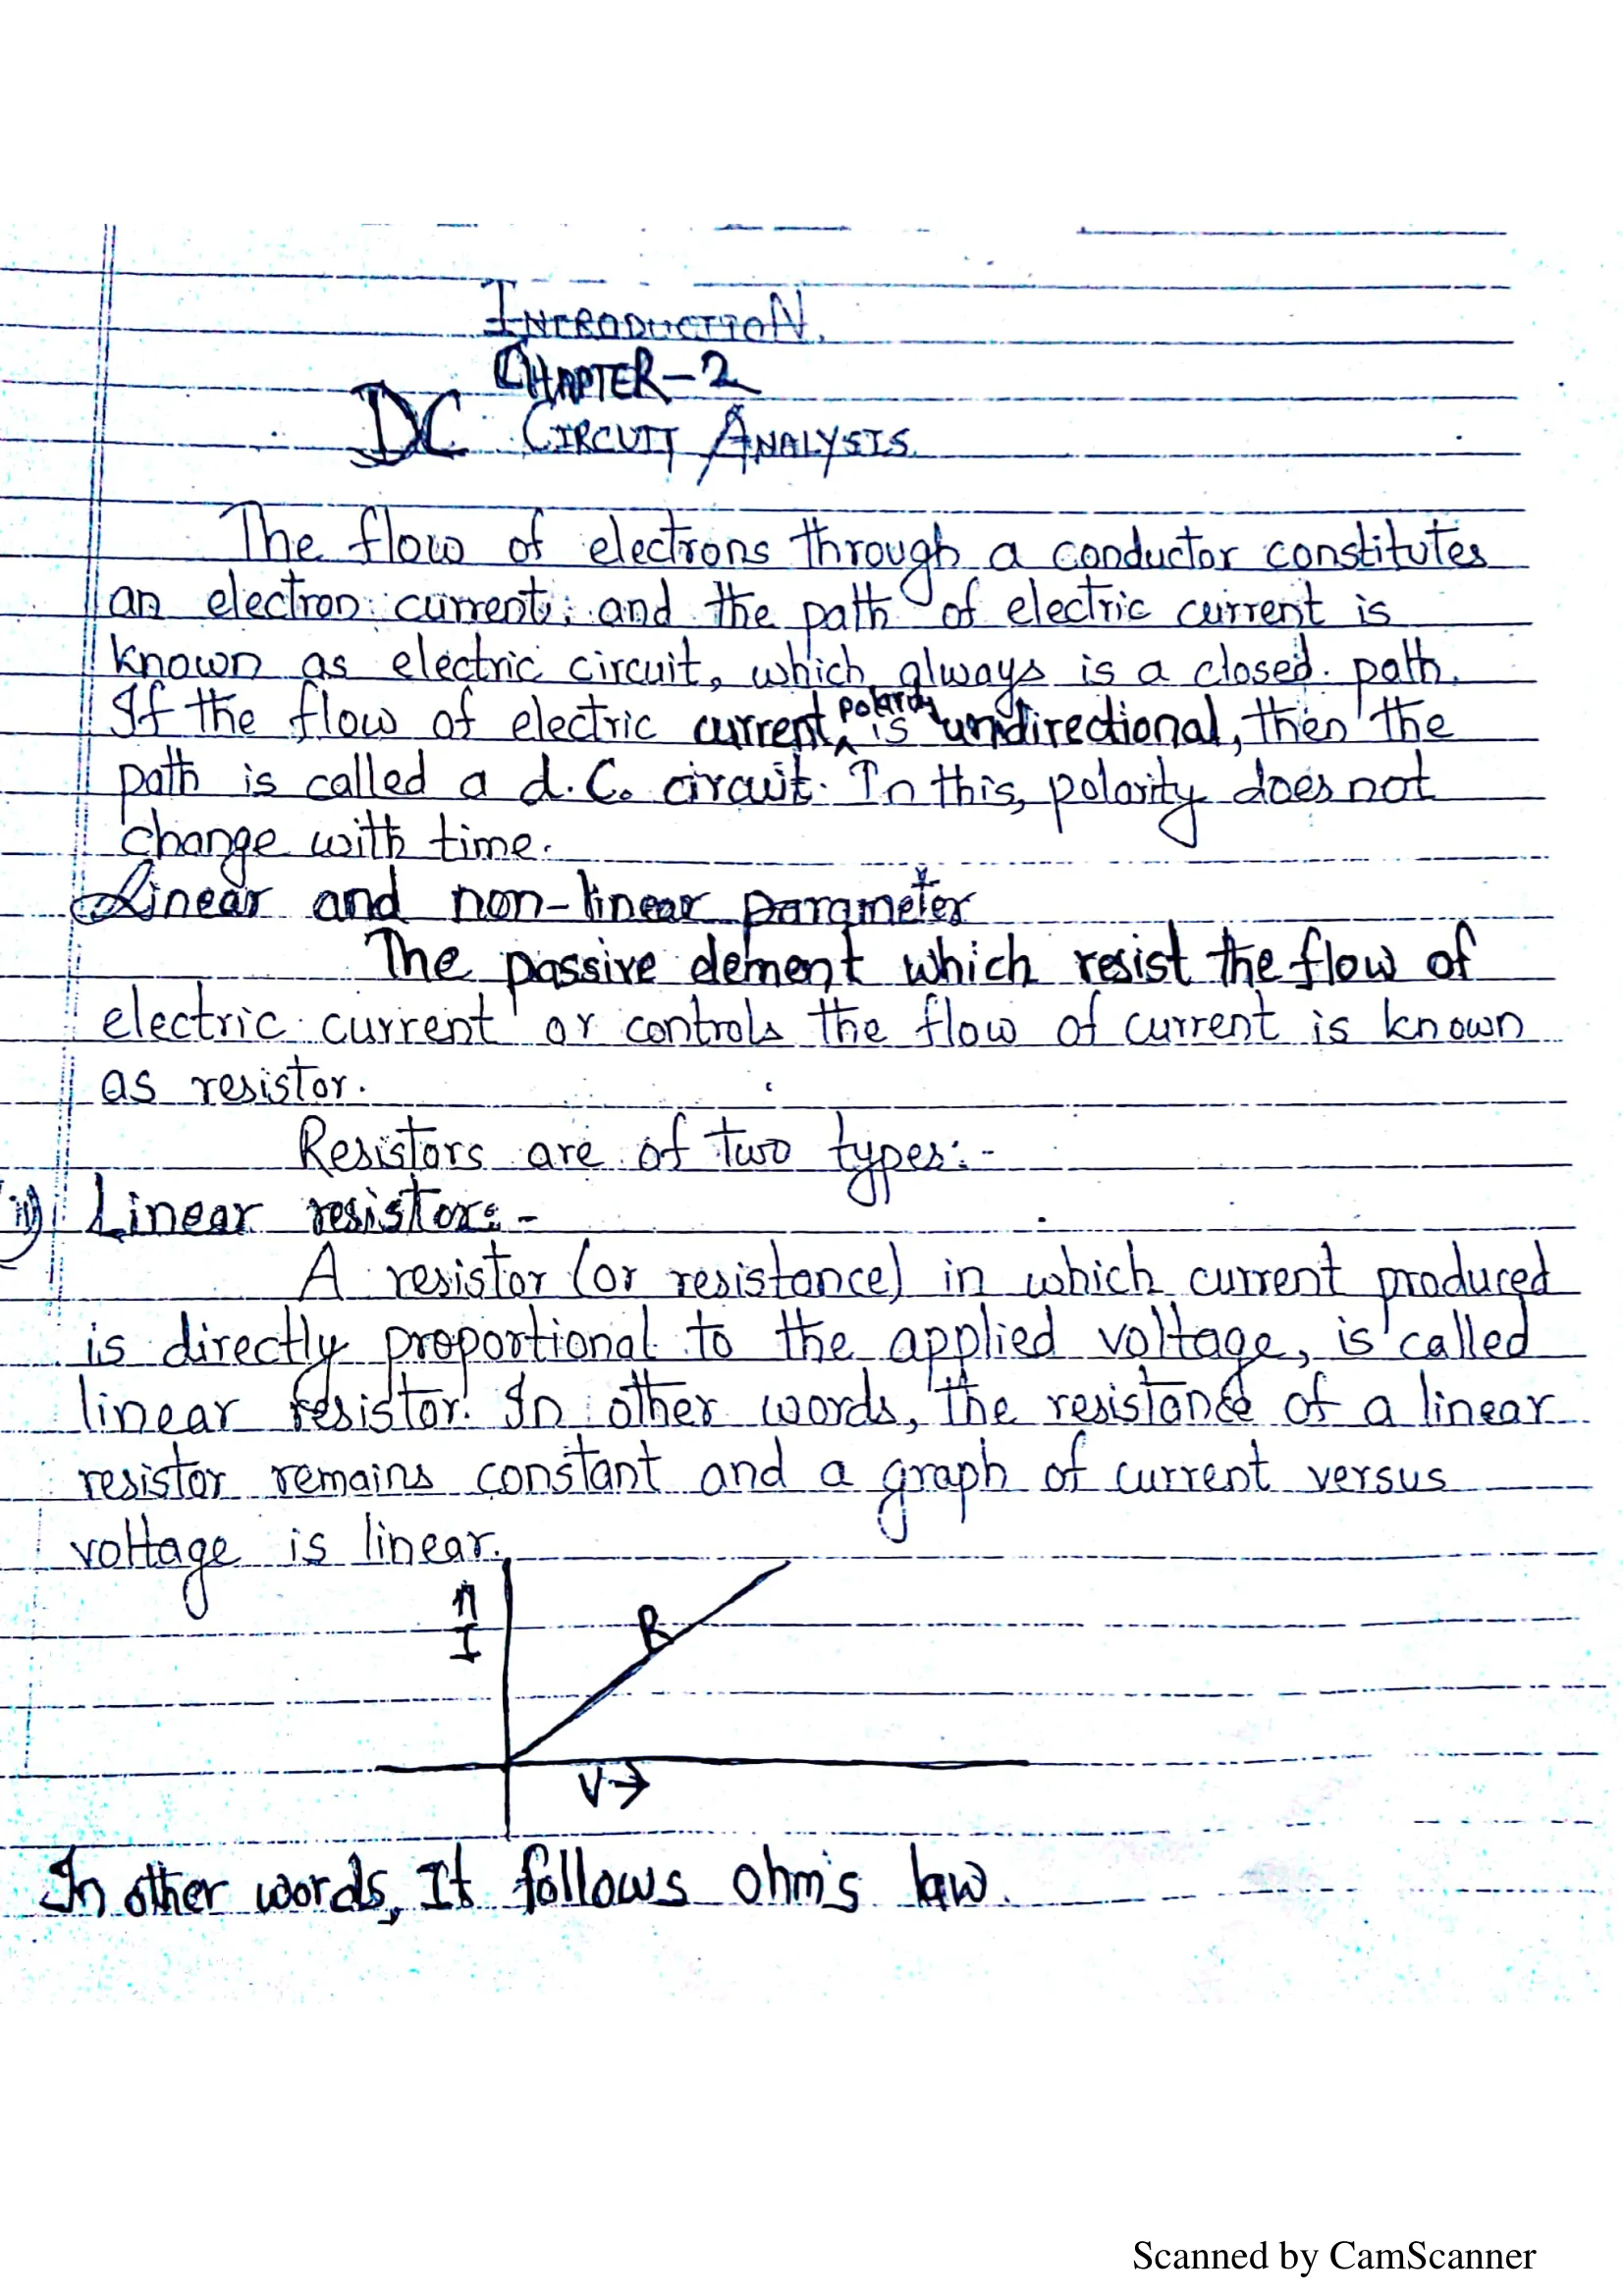 INTRODUCTION.
CHAPTER-2
DC CIRCUIT ANALYSIS.
The flow of electrons through a conductor constitutes
an electron current; and the path of electric current is
known as electric circuit, which always is a closed path.
If the flow of electric current ^ polarity is unidirectional, then the
path is called a d.c. circuit. In this, polarity does not
change with time.
Linear and non-linear parameter
The passive element which resist the flow of
electric current or controls the flow of current is known
as resistor.
Resistors are of two types:-
i) Linear resistor:-
A resistor (or resistance) in which current produced
is directly proportional to the applied voltage, is called
linear resistor. In other words, the resistance of a linear
resistor remains constant and a graph of current versus
voltage is linear.
↑
I
R
V→
In other words, It follows ohm's law.
Scanned by CamScanner